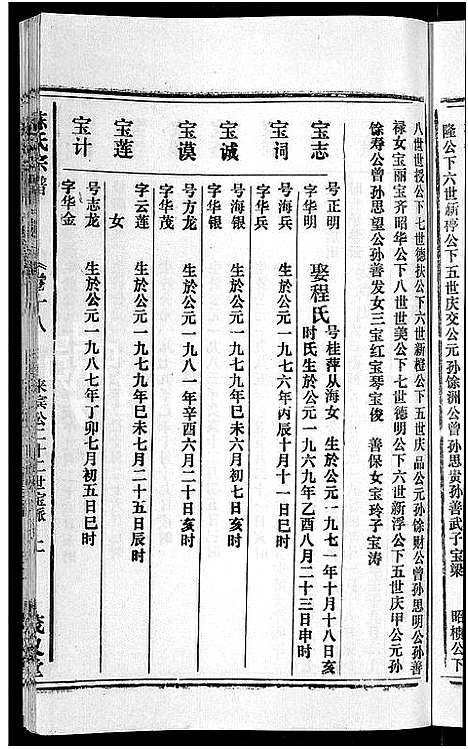 隆公下六世新浮公下五世庆交公元孙馀洲公曾孙思贵孙善武子宝梁　昭楼公下
八世世授公下七世德扶公下六世新橙公下五世庆品公元孙馀财公曾孙思明公孙善
禄女宝丽宝齐昭华公下八世世美公下七世德明公下六世新浮公下五世庆甲公元孙
馀寿公曾孙思望公孙善发女三宝红宝琴宝俊　善保女宝玲子宝涛
宝志
号正明
字华明
娶程氏
号桂萍从海女　生於公元一九七一年十月十八日亥时
时氏生於公元一九六九年乙酉八月二十三日申时
宝词
号海兵
字华兵
生於公元一九七六年丙辰十月十一日亥时
宝诚
号海银
字华银
生於公元一九七九年巳未六月初七日亥时
宝谟
号方龙
字华茂
生於公元一九八一年辛酉六月二十日亥时
宝莲
字云莲
女
生於公元一九七九年巳未七月二十五日辰时
宝计
号志龙
字华金
生於公元一九八七年丁卯七月初五日巳时
氏宗谱
来宾公二十二世宝派